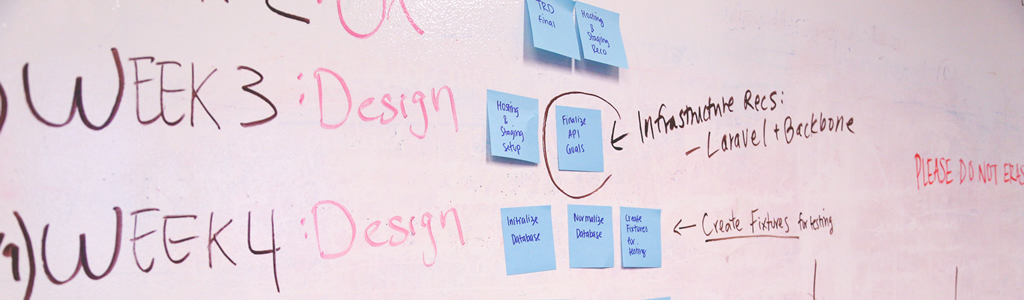 TRD
Final
Hosting
&
Staging
Reco
WEEK 3 : Design
Hosting
&
Staging
Setup
Finalize
API
Goals
Infrastructure Recs:
- Laravel + Backbone
PLEASE DO NOT ERAS
WEEK 4 : Design
Initialize
Database
Normalize
Database
Create
Fixtures
for
testing
← Create Fixtures for testing